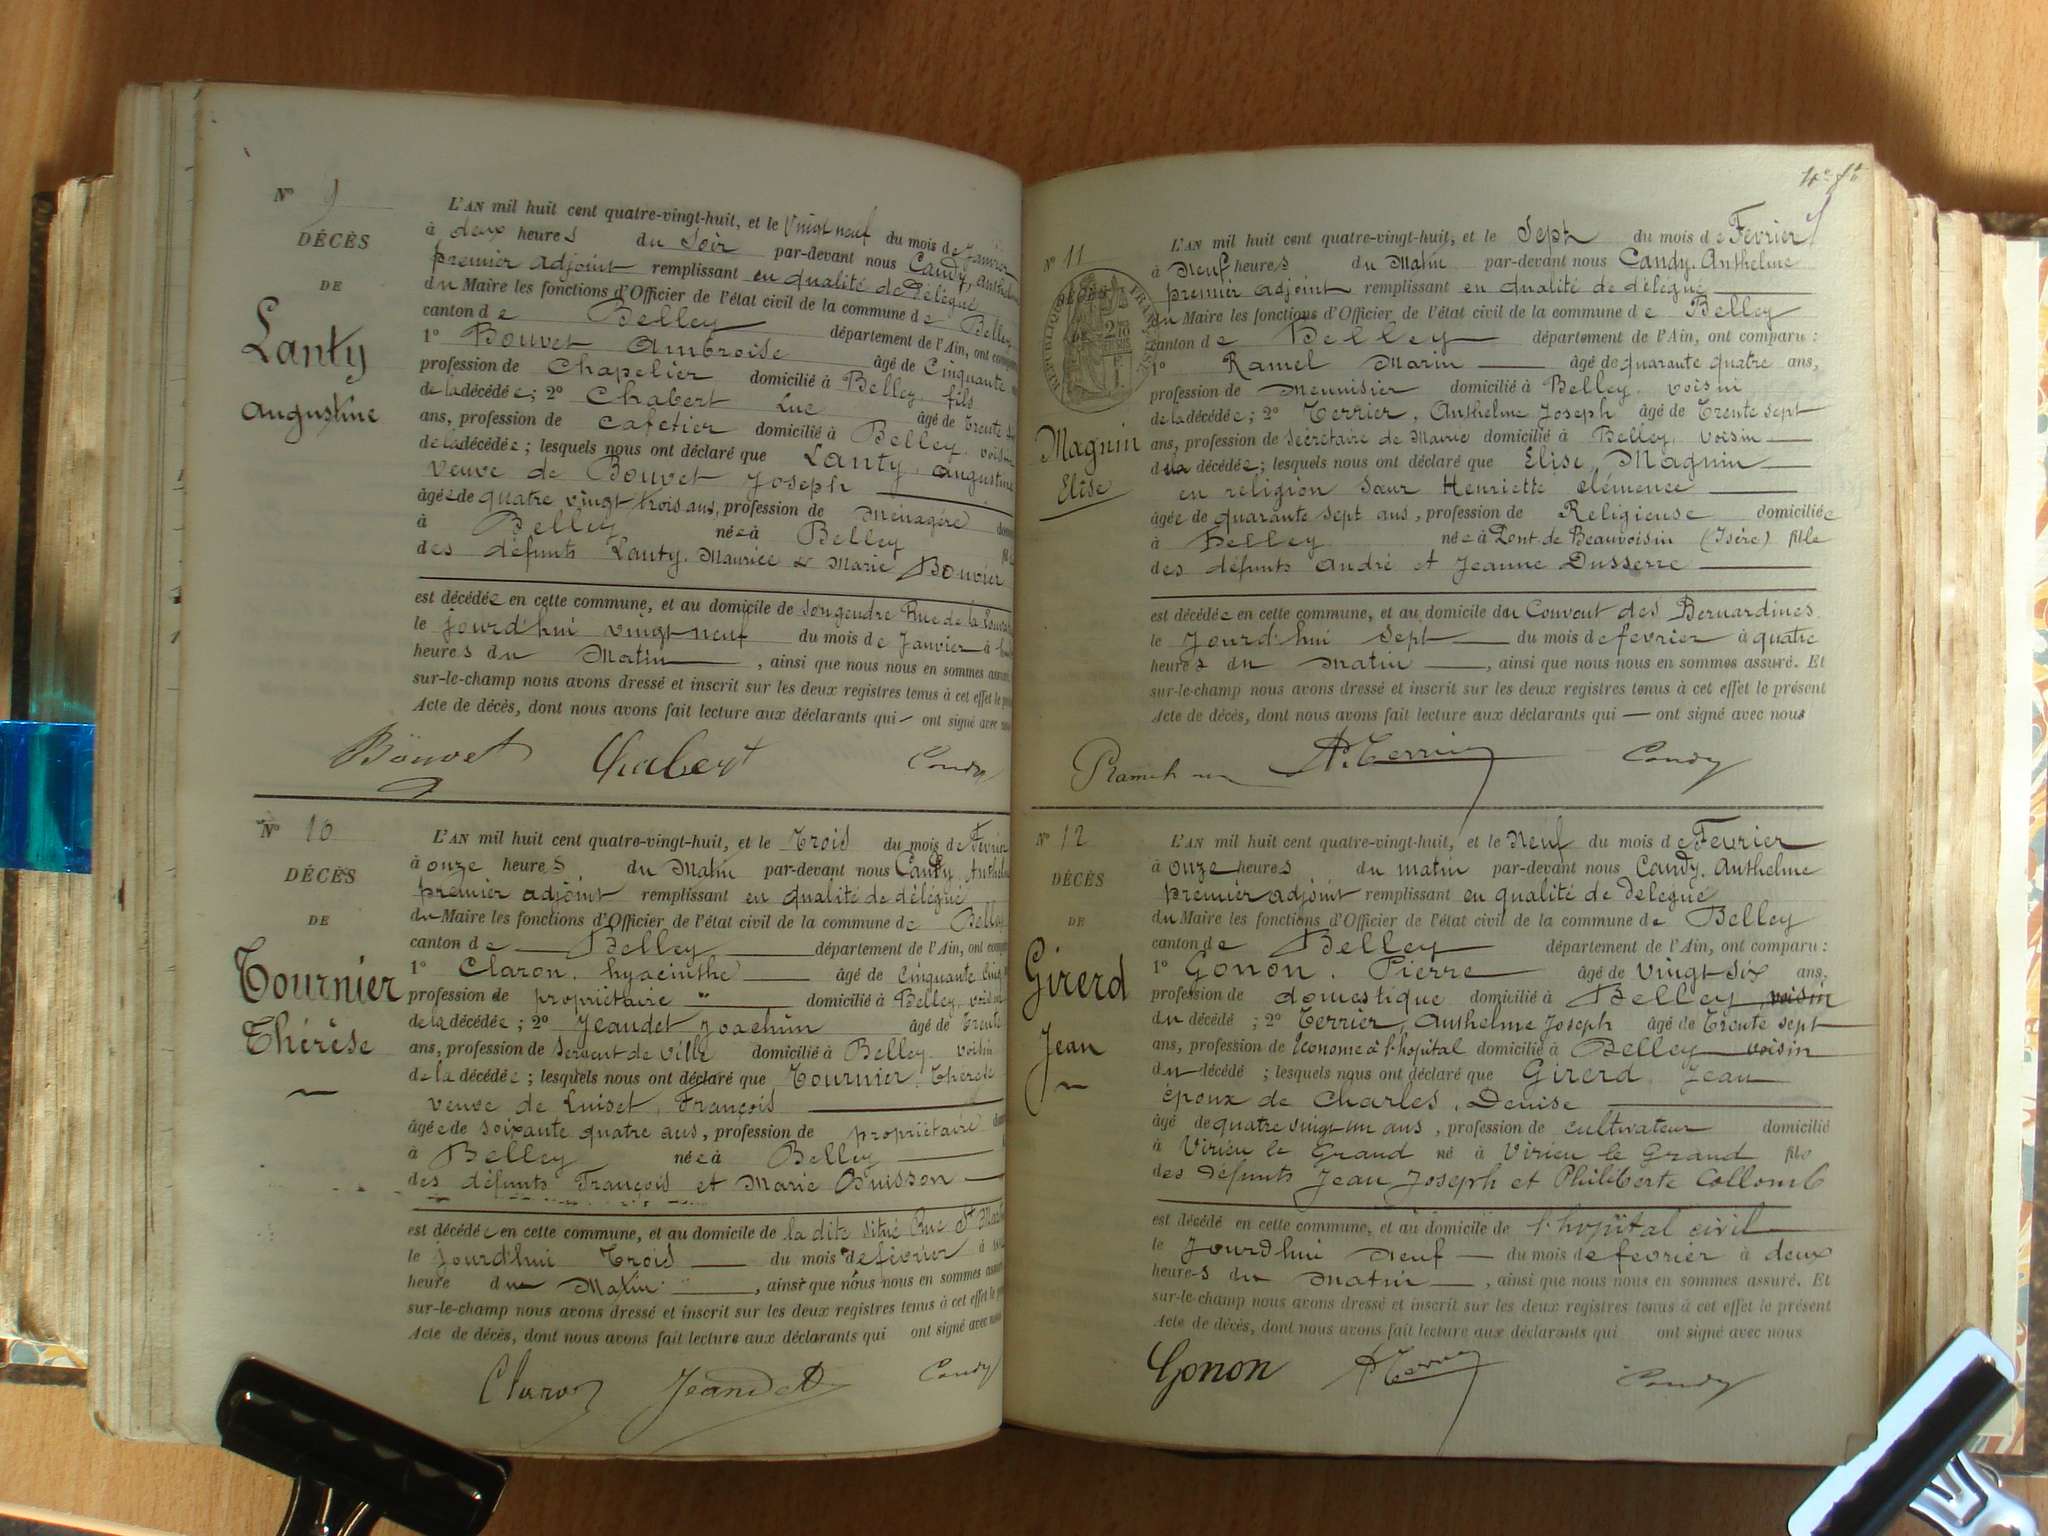 N° 9
DÉCÈS
DE
Lanty
Augustine
L'AN mil huit cent quatre-vingt-huit, et le Vingt neuf du mois de Janvier
à deux heures du Soir par-devant nous Candy, Anthelme
premier adjoint remplissant en qualité de Délégué
du Maire les fonctions d'Officier de l'état civil de la commune de Belley
canton de Belley département de l'Ain, ont comparu
1° Bouvet Ambroise âgé de Cinquante
profession de Chapelier domicilié à Belley, fils
de la décédée; 2° Chabert Luc âgé de Trente
ans, profession de cafetier domicilié à Belley, voisin
de la décédée; lesquels nous ont déclaré que Lanty, Augustine
Veuve de Bouvet Joseph
âgée de quatre vingt trois ans, profession de Ménagère
à Belley née à Belley
des défunts Lanty, Maurice & Marie Bouvier
est décédée en cette commune, et au domicile de son gendre Rue de la
le jourd'hui vingt neuf du mois de Janvier à
heures du Matin, ainsi que nous nous en sommes assuré.
sur-le-champ nous avons dressé et inscrit sur les deux registres tenus à cet effet le
Acte de décès, dont nous avons fait lecture aux déclarants qui ont signé avec nous
Bouvet Chabert Candy
N° 10
DÉCÈS
DE
Tournier
Thérèse
L'AN mil huit cent quatre-vingt-huit, et le Trois du mois de Février
à onze heures du Matin par-devant nous Candy, Anthelme
premier adjoint remplissant en qualité de délégué
du Maire les fonctions d'Officier de l'état civil de la commune de Belley
canton de Belley département de l'Ain, ont
1° Claron, hyacinthe âgé de Cinquante cinq
profession de propriétaire domicilié à Belley, voisin
de la décédée; 2° Jeaudet Joachim âgé de Trente
ans, profession de Sergent de Ville domicilié à Belley, voisin
de la décédée; lesquels nous ont déclaré que Tournier, Thérèse
veuve de Luiset, François
âgée de soixante quatre ans, profession de propriétaire
à Belley née à Belley
des défunts François et Marie Buisson
est décédée en cette commune, et au domicile de la dite situé Rue St
le jourd'hui Trois du mois de février à
heure du Matin, ainsi que nous nous en sommes assuré
sur-le-champ nous avons dressé et inscrit sur les deux registres tenus à cet effet le
Acte de décès, dont nous avons fait lecture aux déclarants qui ont signé avec nous
Claron Jeaudet Candy
N° 11
DÉCÈS
DE
RÉPUBLIQUE FRANÇAISE
Magnin
Elise
L'AN mil huit cent quatre-vingt-huit, et le Sept du mois de Février
à Neuf heures du Matin par-devant nous Candy, Anthelme
premier adjoint remplissant en qualité de délégué
du Maire les fonctions d'Officier de l'état civil de la commune de Belley
canton de Belley département de l'Ain, ont comparu :
1° Ramel Marin âgé de quarante quatre ans,
profession de Menuisier domicilié à Belley, voisin
de la décédée; 2° Terrier, Anthelme Joseph âgé de Trente sept
ans, profession de Secrétaire de Mairie domicilié à Belley, voisin
de la décédée; lesquels nous ont déclaré que Elise Magnin
en religion Sœur Henriette clémence
âgée de quarante sept ans, profession de Religieuse domiciliée
à Belley née à Pont de Beauvoisin (Isère) fille
des défunts André et Jeanne Dusserre
est décédée en cette commune, et au domicile du Couvent des Bernardines
le Jourd'hui Sept du mois de fevrier à quatre
heures du Matin, ainsi que nous nous en sommes assuré. Et
sur-le-champ nous avons dressé et inscrit sur les deux registres tenus à cet effet le présent
Acte de décès, dont nous avons fait lecture aux déclarants qui — ont signé avec nous
Terrier Candy
N° 12
DÉCÈS
DE
Girerd
Jean
L'AN mil huit cent quatre-vingt-huit, et le Neuf du mois de Fevrier
à onze heures du matin par-devant nous Candy, Anthelme
premier adjoint remplissant en qualité de Délégué
du Maire les fonctions d'Officier de l'état civil de la commune de Belley
canton de Belley département de l'Ain, ont comparu :
1° Gonon, Pierre âgé de vingt-six ans,
profession de domestique domicilié à Belley voisin
du décédé; 2° Terrier, Anthelme Joseph âgé de Trente sept
ans, profession de Econome à l'hopital domicilié à Belley voisin
du décédé; lesquels nous ont déclaré que Girerd, Jean
époux de Charles, Denise
âgé de quatre vingt un ans, profession de cultivateur domicilié
à Virieu le Grand né à Virieu le Grand fils
des Défunts Jean Joseph et Philiberte Collomb
est décédé en cette commune, et au domicile de l'hopital civil
le Jourd'hui Neuf du mois de fevrier à deux
heures du Matin, ainsi que nous nous en sommes assuré. Et
sur-le-champ nous avons dressé et inscrit sur les deux registres tenus à cet effet le présent
Acte de décès, dont nous avons fait lecture aux déclarants qui ont signé avec nous
Gonon Terrier Candy